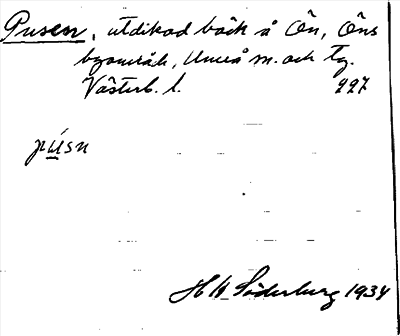 Pusen, utdikad bäck å Ön, Öns
byområde, Umeå sn. och tg.
Västerb. l. 227
pùsn
H W Söderberg 1934